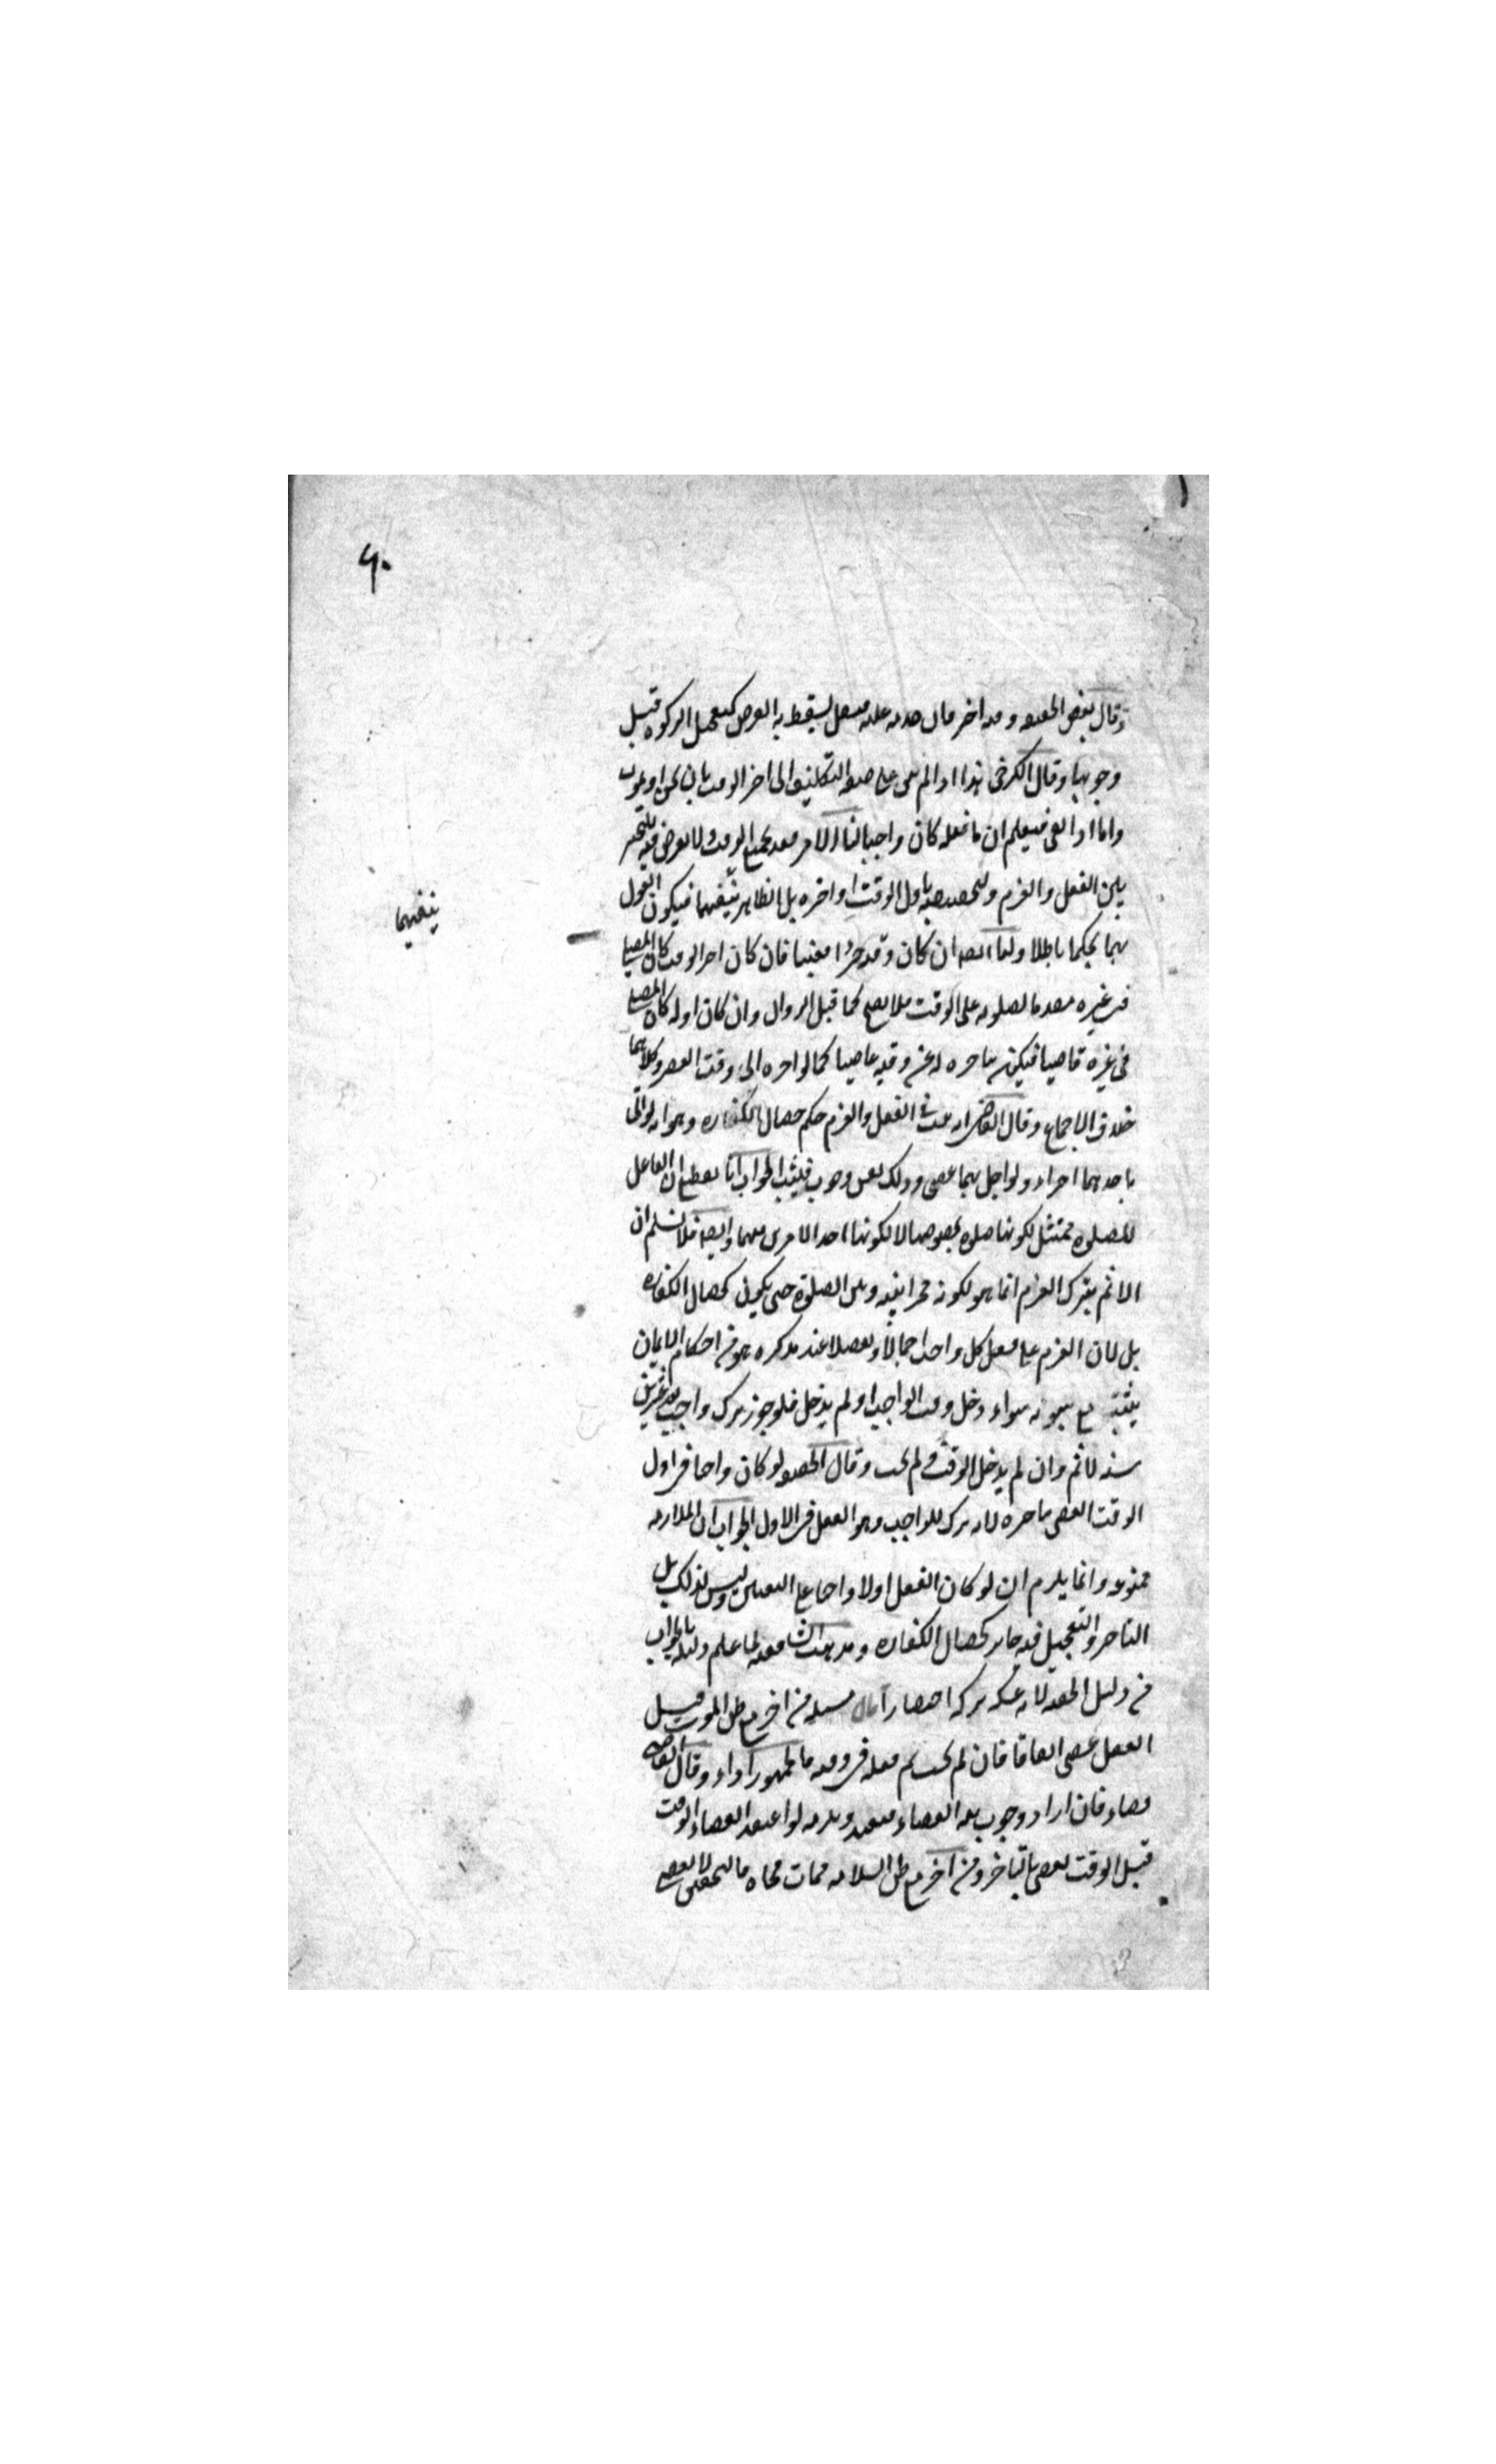 ٦٠
وقال بعض الحنفيه وقته اخره فان قدمه عليه فنفل يسقط به الفرض كتعجيل الزكوة قبل
وجوبها وقال الكرخى هذا اذا لم يبق على صفه التكليف الى اخر الوقت بان يجن او يموت
واما اذا بقى فيعلم ان ما فعله كان واجبا لنا ان الامر مقيد بجميع الوقت ولا تعرض فيه للتخيير
بين الفعل والعزم ولا لتخصيصه باول الوقت او اخره بل الظاهر ينفيهما فيكون القول
ينفيهما
بهما تحكما باطلا ولنا ايضا ان كان وقته جزءا معينا فان كان اخر الوقت كان المصلى
فى غيره مقدما لصلوته على الوقت فلا يصح كما قبل الزوال وان كان اوله كان المصلى
فى غيره قاضيا فيكون بتاخره له عن وقته عاصيا كما لو اخره الى وقت العصر وكلاهما
خلاف الاجماع وقال القاضى انه ثبت فى الفعل والعزم حكم خصال الكفاره وهو انه لو اتى
باحدهما اجزاه ولو اخل بهما عصى وذلك معنى وجوب فيثبت الجواب انا نقطع ان الفاعل
للصلوه ممتثل لكونها صلوه بخصوصها لا لكونها احد الامرين مبهما وايضا فلا نسلم ان
الاثم بترك العزم انما هو لكونه مخيرا بينه وبين الصلوة حتى يكون كخصال الكفاره
بل لان العزم على فعل كل واجب اجمالا وتفصيلا عند تذكره هو من احكام الايمان
يثبت مع ثبوته سواء دخل وقت الواجب او لم يدخل فلو جوز ترك واجب بعد عشرين
سنه لاثم وان لم يدخل الوقت ولم يجب وقال الحنفيه لو كان واجبا فى اول
الوقت لعصى بتاخره لانه ترك للواجب وهو الفعل فى الاول الجواب ان الملازمه
ممنوعه وانما يلزم ان لو كان الفعل اولا واجبا على التعيين وليس كذلك بل
التاخر والتعجيل فيه جائز كخصال الكفاره ومذهب الشافعيه لما علم دليله بالجواب
من دليل الحنفيه لانه عينه تركه اختصارا قال مسئله من اخر مع ظن الموت قبل
الفعل عصى اتفاقا فان لم يمت ثم فعله فى وقته فالجمهور اداء وقال القاضى
قضاء فان اراد وجوب نيه القضاء فبعيد ويلزمه لو اعتقد انقضاء الوقت
قبل الوقت يعصى بالتاخر ومن اخر مع ظن السلامه فمات فجاه فالتحقيق لا يعصى